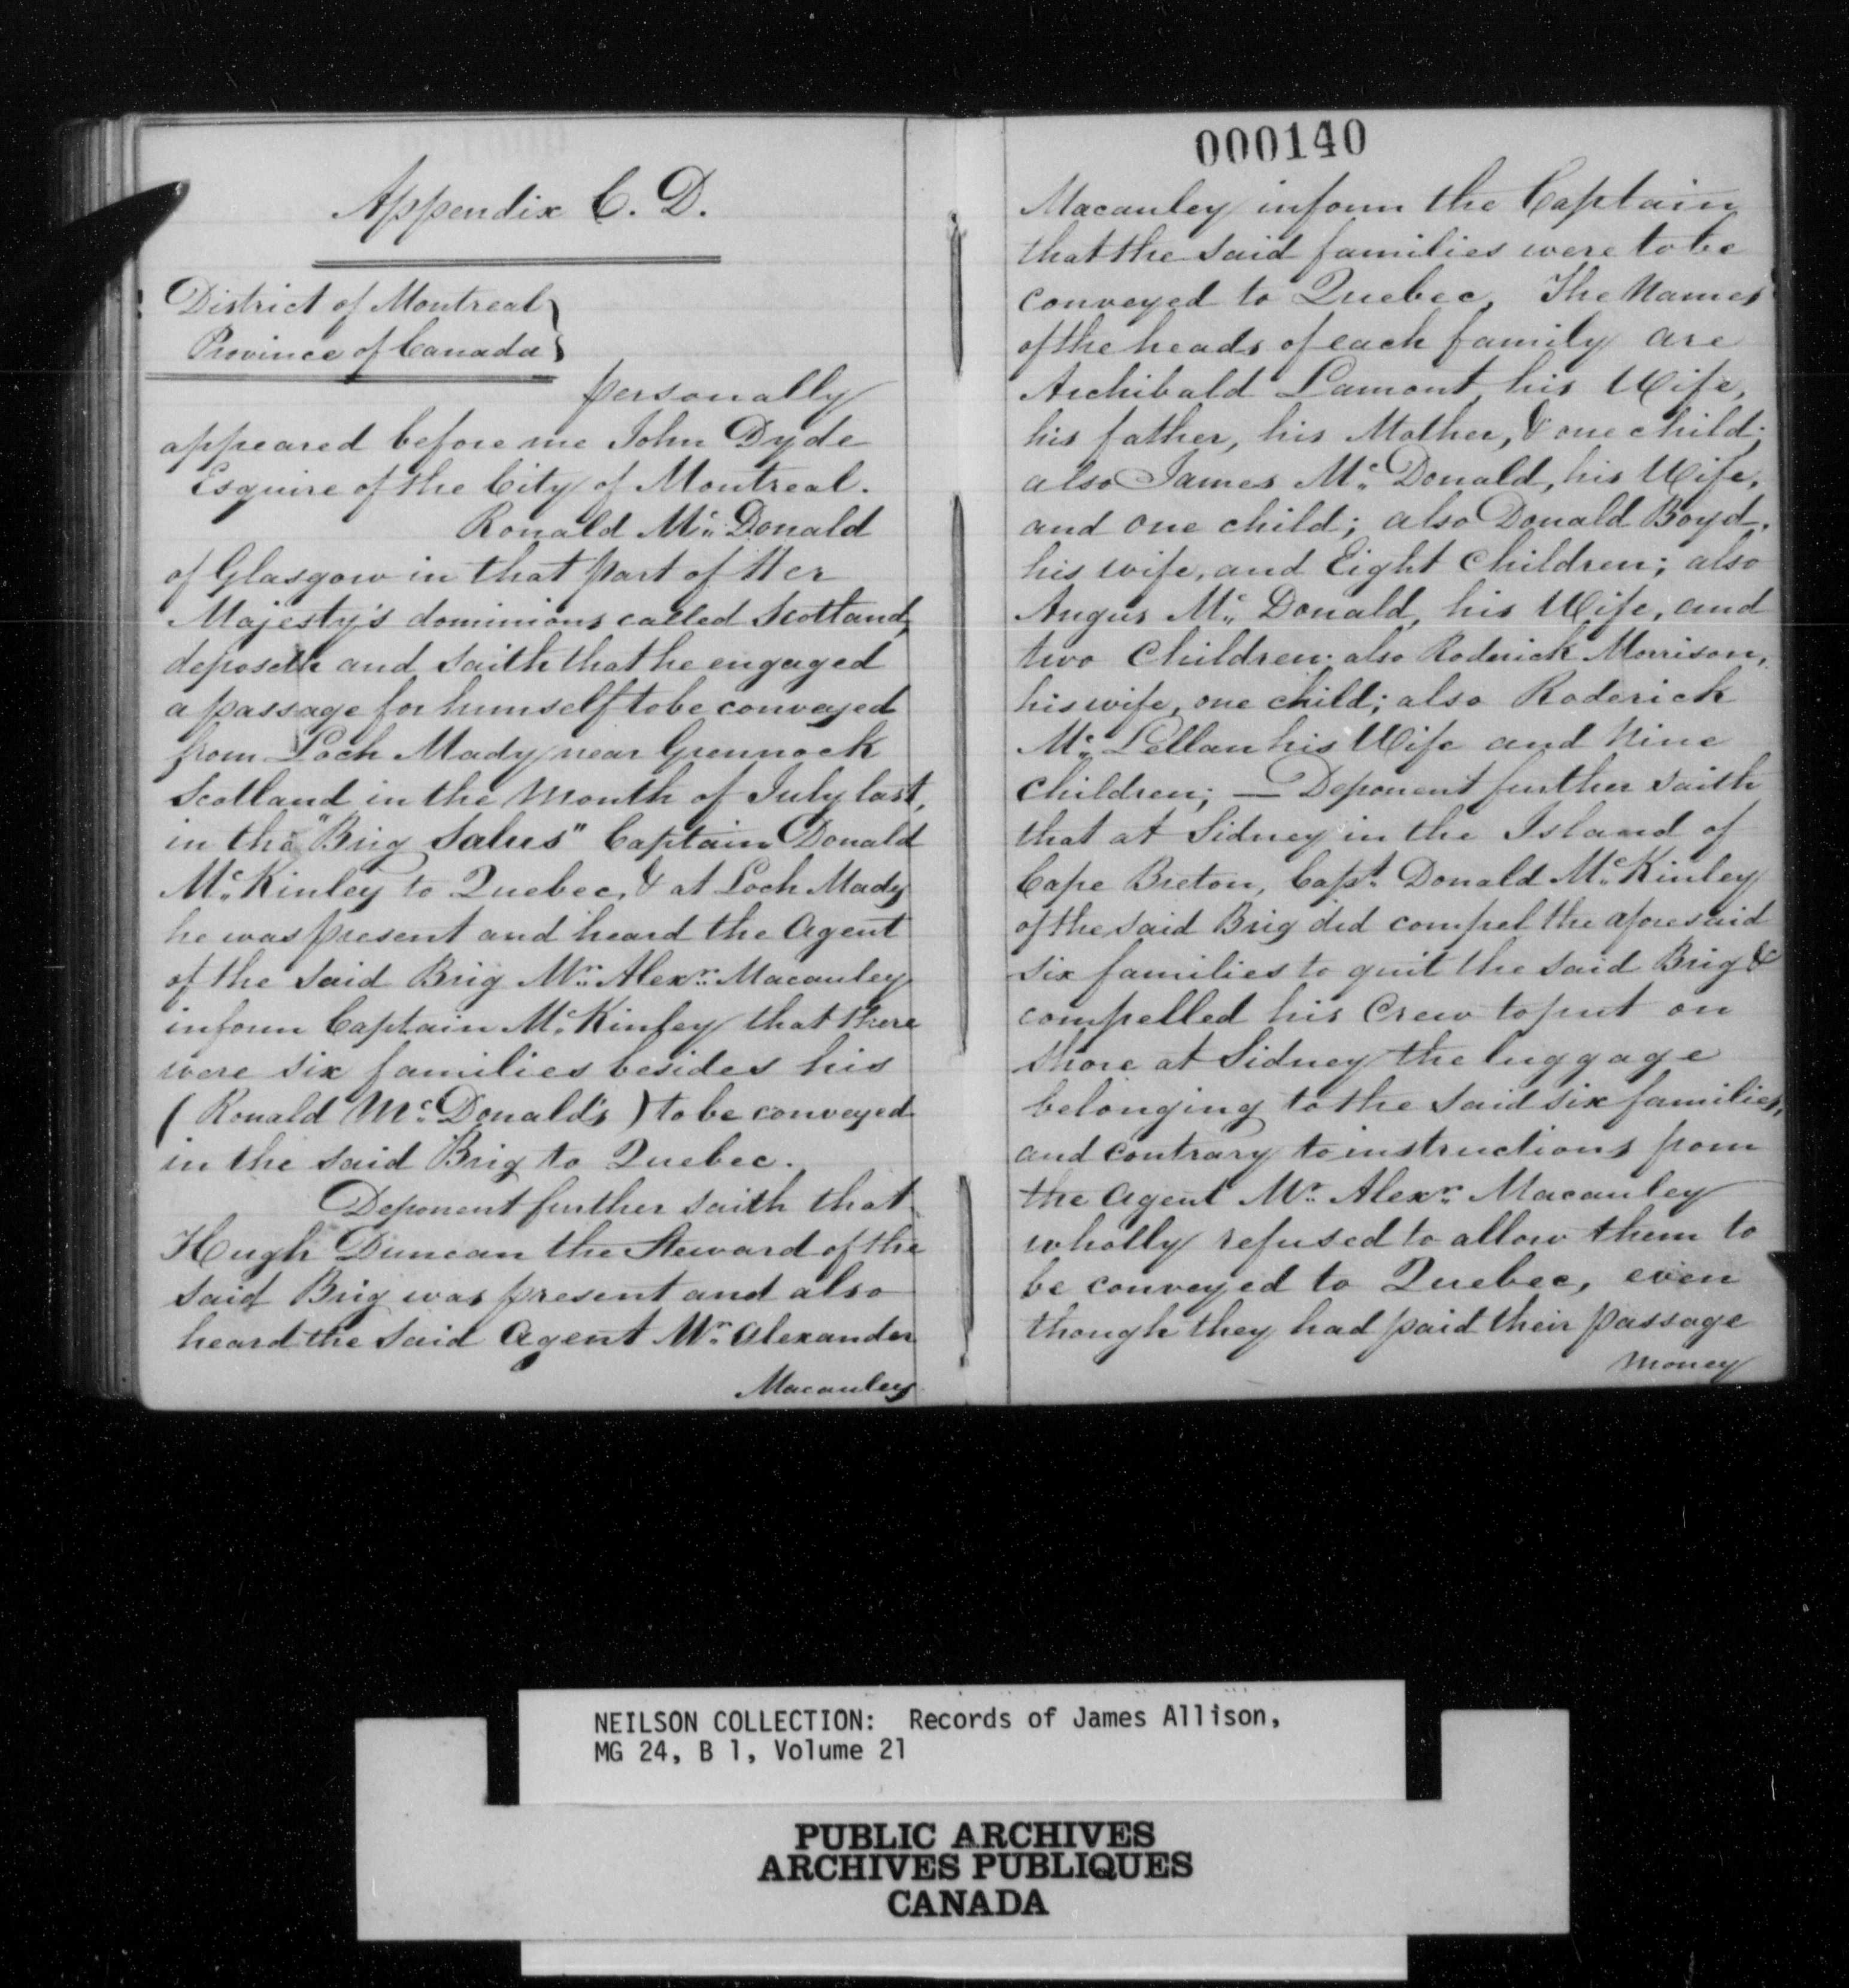 Appendix C. D.
District of Montreal
Province of Canada
personally
appeared before me John Dyde
Esquire of the City of Montreal.
Ronald Mc. Donald
of Glasgow in that part of Her
Majesty's dominions called Scotland,
deposeth and saith that he engaged
a passage for himself to be conveyed
from Loch Mady near Greenock
Scotland in the Month of July last,
in the "Brig Salus" Captain Donald
Mc. Kinley to Quebec, & at Loch Mady
he was present and heard the Agent
of the said Brig Mr. Alexr. Macauley
inform Captain Mc. Kinley that there
were six families besides his
(Ronald Mc. Donald's) to be conveyed
in the said Brig to Quebec.
Deponent further saith that
Hugh Duncan the Steward of the
said Brig was present and also
heard the said Agent Mr. Alexander
Macauley
000140
Macauley inform the Captain
that the said families were to be
conveyed to Quebec, The Names
of the heads of each family are
Archibald Lamont, his Wife,
his father, his Mother, & one child;
also James Mc. Donald, his Wife,
and one child; also Donald Boyd,
his wife, and Eight Children; also
Angus Mc. Donald, his Wife, and
two Children; also Roderick Morrison,
his wife, one child; also Roderick
Mc. Lellan his Wife and Nine
Children; — Deponent further saith
that at Sidney in the Island of
Cape Breton, Capt. Donald Mc. Kinley
of the said Brig did compel the aforesaid
six families to quit the said Brig &
compelled his Crew to put on
shore at Sidney the luggage
belonging to the said six families,
and contrary to instructions from
the Agent Mr. Alexr. Macauley
wholly refused to allow them to
be conveyed to Quebec, even
though they had paid their passage
money
NEILSON COLLECTION: Records of James Allison,
MG 24, B 1, Volume 21
PUBLIC ARCHIVES
ARCHIVES PUBLIQUES
CANADA